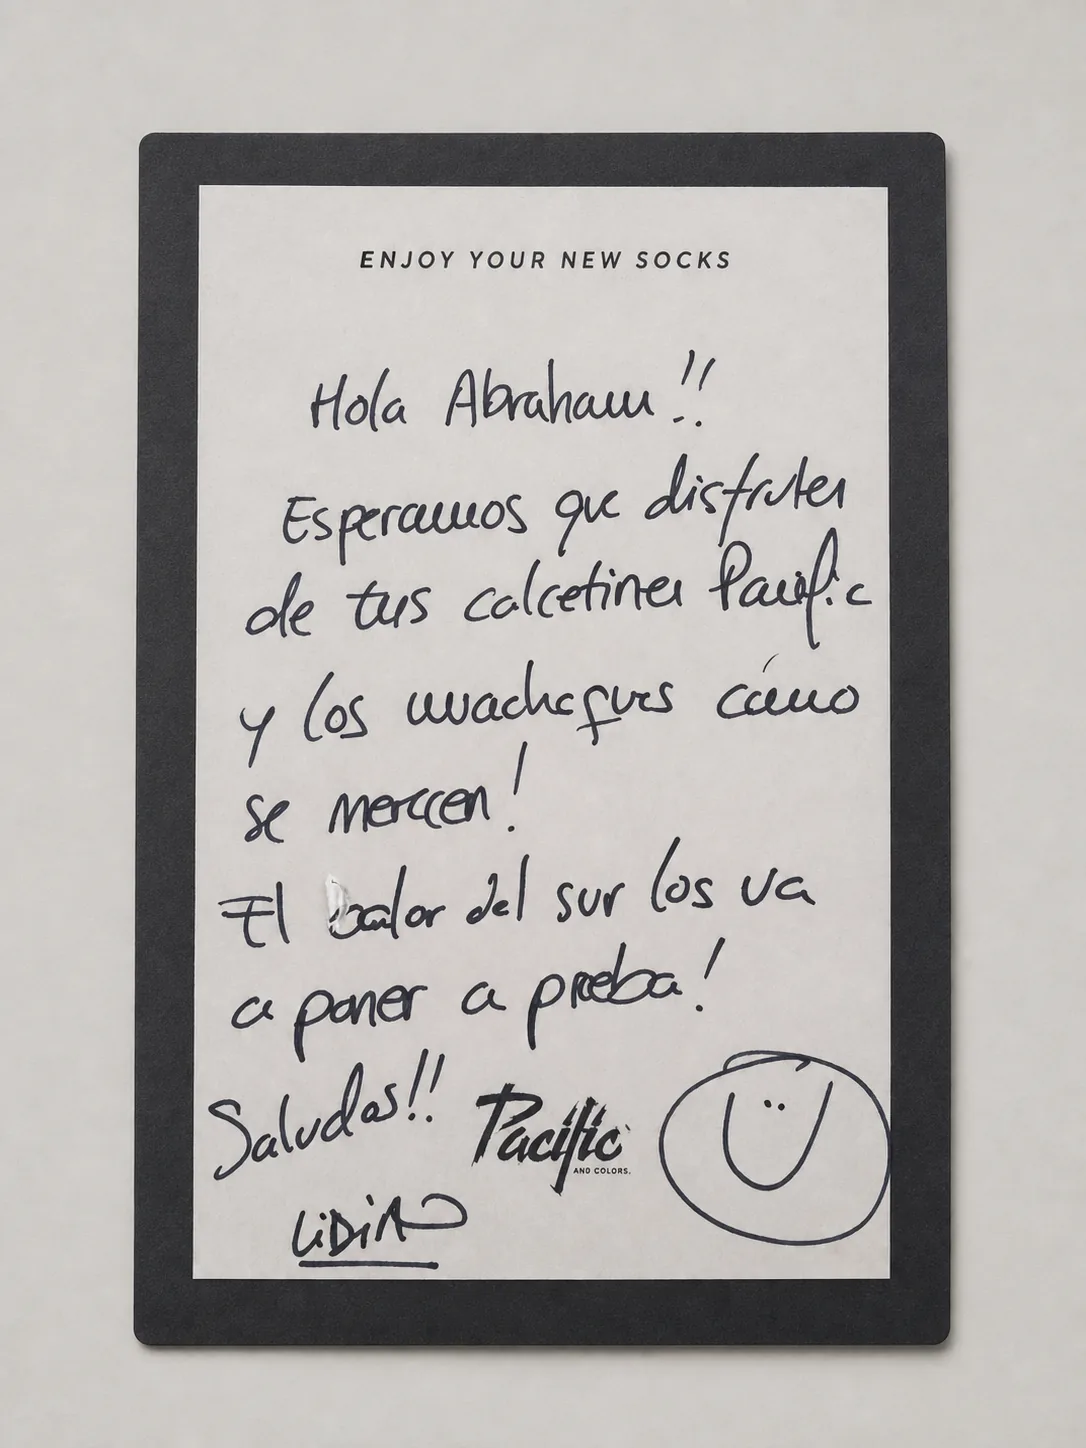 ENJOY YOUR NEW SOCKS
Hola Abraham!!
Esperamos que disfrutes
de tus calcetines Pacific
y los machaques cómo
se merecen!
El calor del sur los va
a poner a prueba!
Saludos!!
Pacific
AND COLORS.
LiDiA